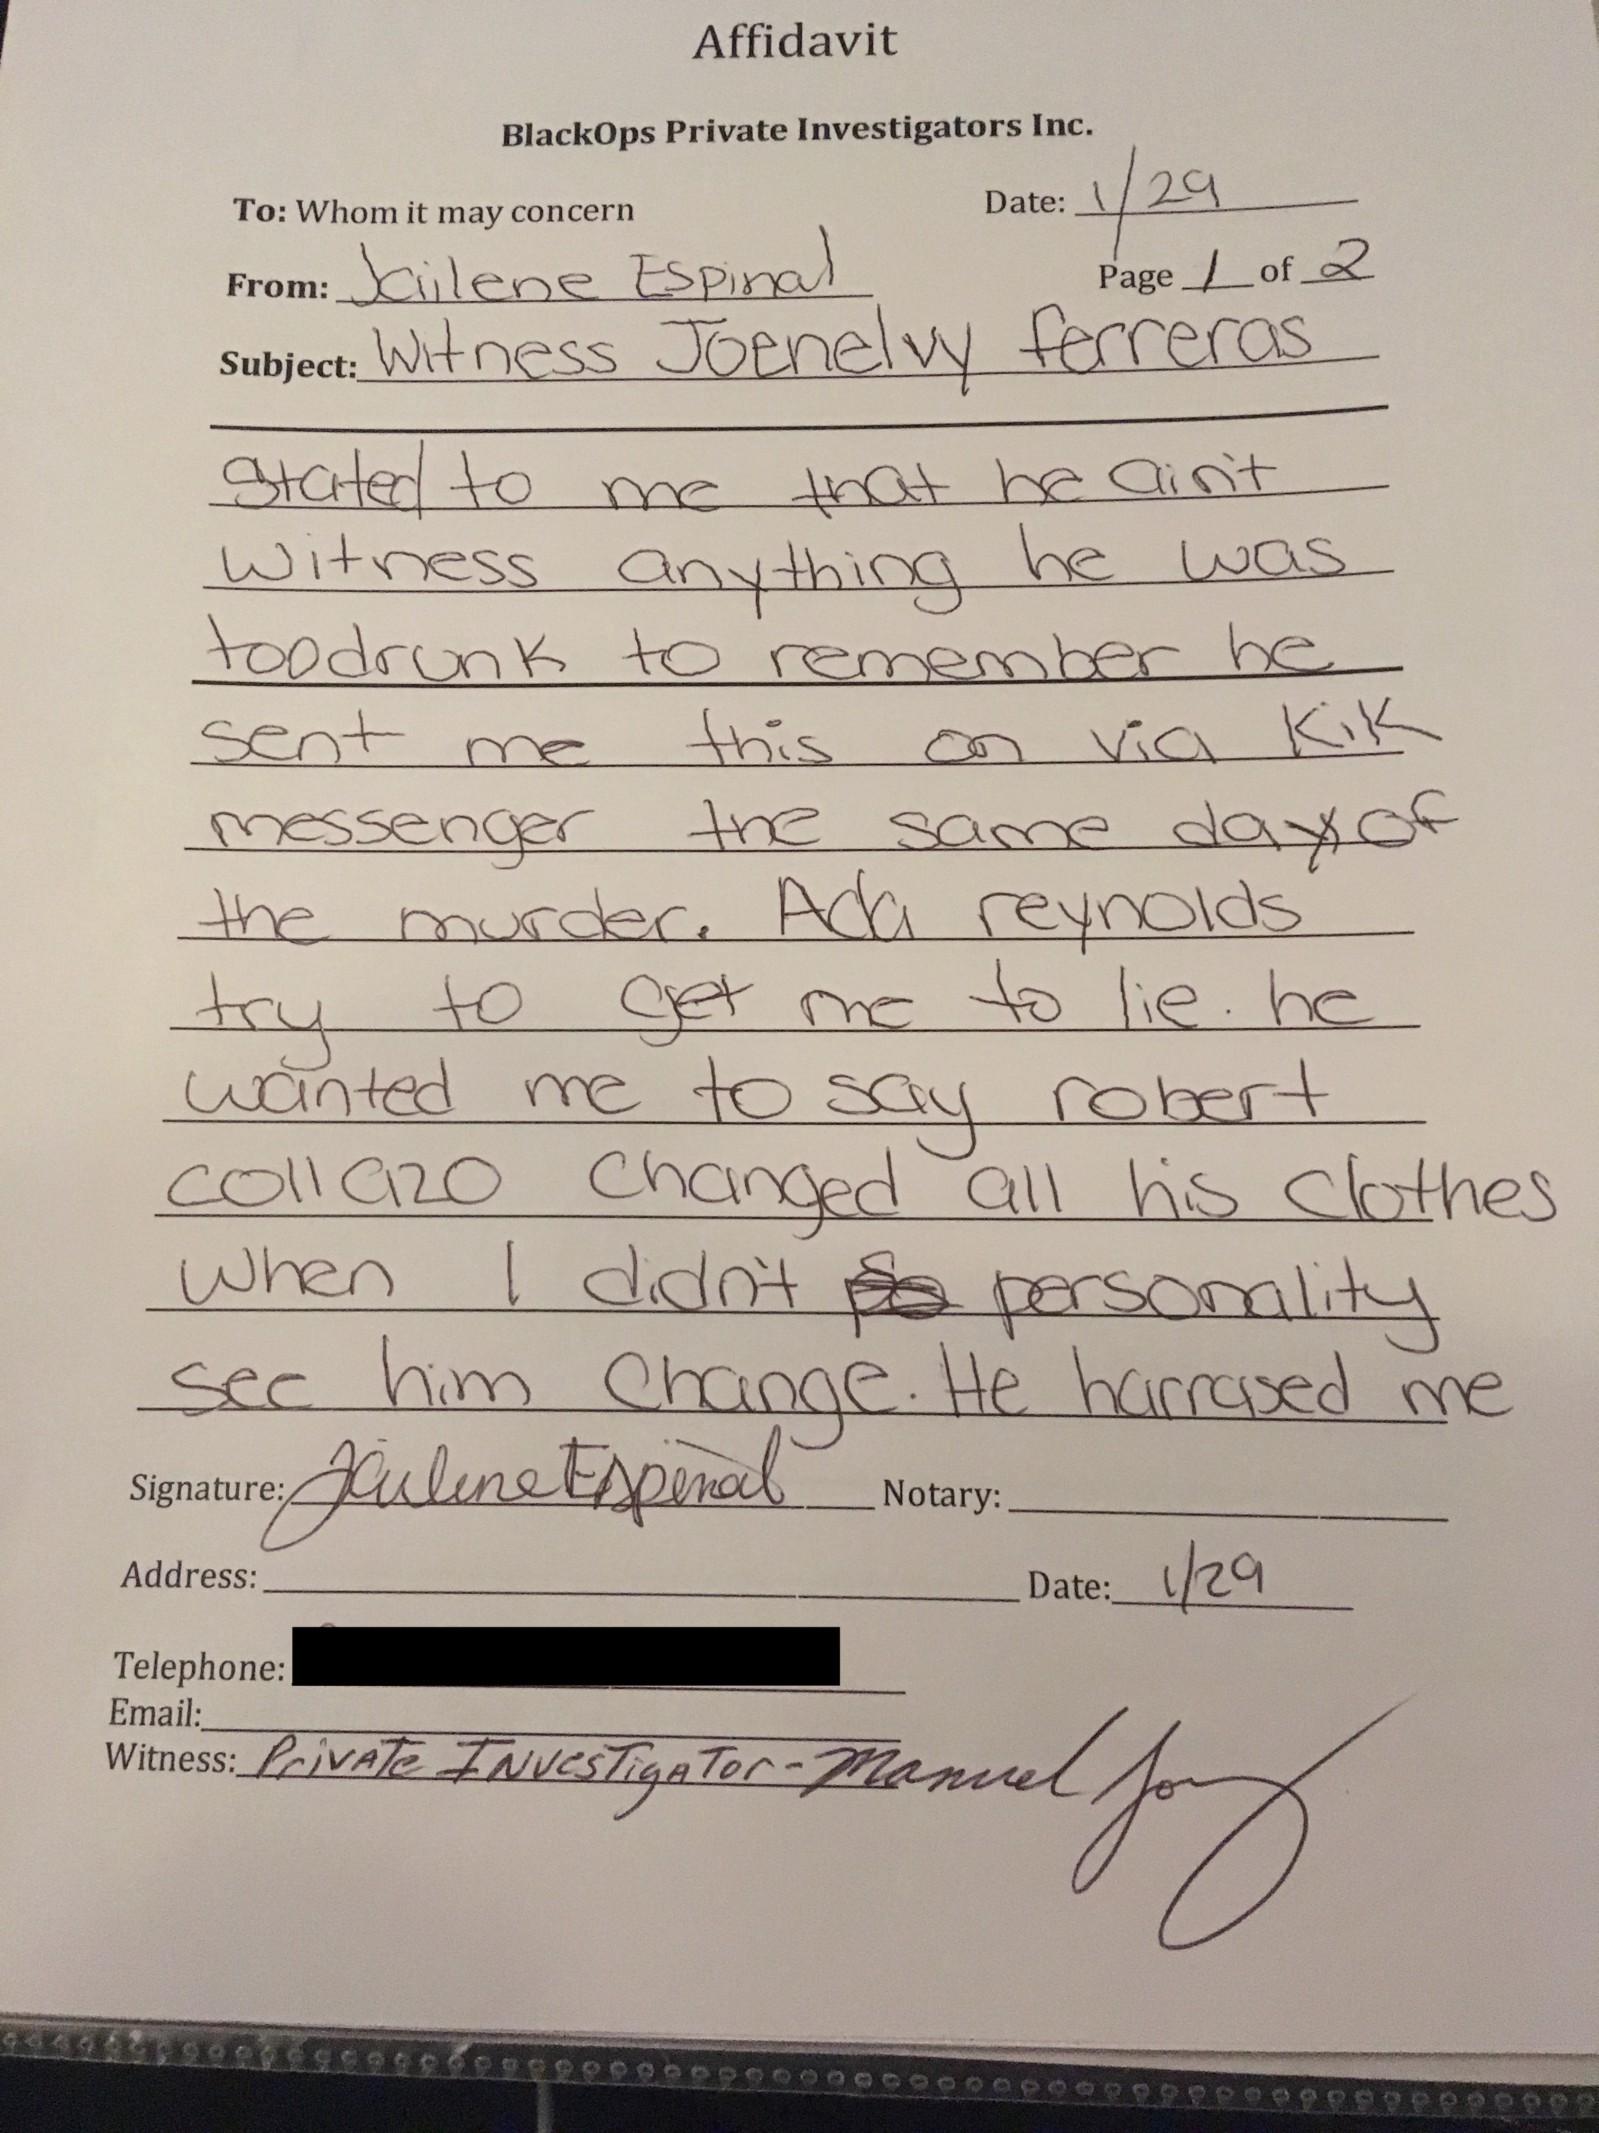 Affidavit
BlackOps Private Investigators Inc.
To: Whom it may concern Date: 1/29
From: Jailene Espinal Page 1 of 2
Subject: Witness Joenelvy ferreras
stated to me that he ain't
witness anything he was
too drunk to remember he
sent me this on via Kik
messenger the same day of
the murder. Ada reynolds
try to get me to lie. he
wanted me to say robert
collazo changed all his clothes
when I didn't personality
see him change. He harrased me
Signature: Jailene Espinal Notary:
Address: Date: 1/29
Telephone:
Email:
Witness: Private Investigator - Manuel